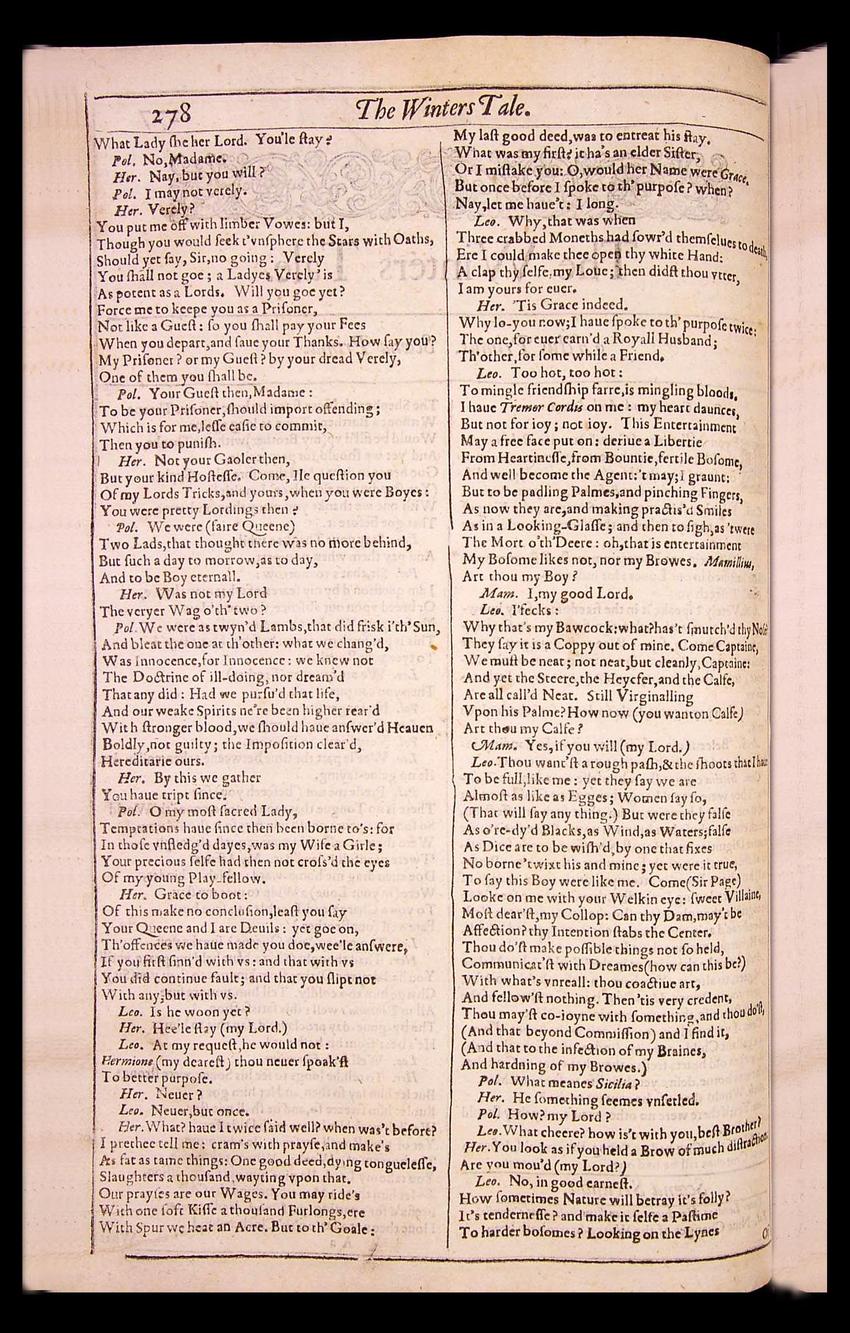 278
The Winters Tale.
What Lady ſhe her Lord. You'le ſtay?
Pol. No, Madame.
Her. Nay, but you will?
Pol. I may not verely.
Her. Verely?
You put me off with limber Vowes: but I,
Though you would ſeek t'vnſphere the Stars with Oaths,
Should yet ſay, Sir, no going: Verely
You ſhall not goe; a Ladyes Verely'is
As potent as a Lords. Will you goe yet?
Force me to keepe you as a Priſoner,
Not like a Gueſt: ſo you ſhall pay your Fees
When you depart, and ſaue your Thanks. How ſay you?
My Priſoner? or my Gueſt? by your dread Verely,
One of them you ſhall be.
Pol. Your Gueſt then, Madame:
To be your Priſoner, ſhould import offending;
Which is for me, leſſe eaſie to commit,
Then you to puniſh.
Her. Not your Gaoler then,
But your kind Hoſteſſe. Come, Ile queſtion you
Of my Lords Tricks, and yours, when you were Boyes:
You were pretty Lordings then?
Pol. We were (faire Queene)
Two Lads, that thought there was no more behind,
But ſuch a day to morrow, as to day,
And to be Boy eternall.
Her. Was not my Lord
The veryer Wag o'th' two?
Pol. We were as twyn'd Lambs, that did frisk i'th' Sun,
And bleat the one at th'other: what we chang'd,
Was Innocence, for Innocence: we knew not
The Doctrine of ill-doing, nor dream'd
That any did: Had we purſu'd that life,
And our weake Spirits ne're been higher rear'd
With ſtronger blood, we ſhould haue anſwer'd Heauen
Boldly, not guilty; the Impoſition clear'd,
Hereditarie ours.
Her. By this we gather
You haue tript ſince.
Pol. O my moſt ſacred Lady,
Temptations haue ſince then been borne to's: for
In thoſe vnfledg'd dayes, was my Wife a Girle;
Your precious ſelfe had then not croſs'd the eyes
Of my young Play-fellow.
Her. Grace to boot:
Of this make no concluſion, leaſt you ſay
Your Queene and I are Deuils: yet goe on,
Th'offences we haue made you doe, wee'le anſwere,
If you firſt ſinn'd with vs: and that with vs
You did continue fault; and that you ſlipt not
With any, but with vs.
Leo. Is he woon yet?
Her. Hee'le ſtay (my Lord.)
Leo. At my requeſt, he would not:
Hermione (my deareſt) thou neuer ſpoak'ſt
To better purpoſe.
Her. Neuer?
Leo. Neuer, but once.
Her. What? haue I twice ſaid well? when was't before?
I prethee tell me: cram's with prayſe, and make's
As fat as tame things: One good deed, dying tongueleſſe,
Slaughters a thouſand, wayting vpon that.
Our prayſes are our Wages. You may ride's
With one ſoft Kiſſe a thouſand Furlongs, ere
With Spur we heat an Acre. But to th' Goale:
My laſt good deed, was to entreat his ſtay.
What was my firſt? it ha's an elder Siſter,
Or I miſtake you: O, would her Name were Grace.
But once before I ſpoke to th' purpoſe? when?
Nay, let me haue't: I long.
Leo. Why, that was when
Three crabbed Moneths had ſowr'd themſelues to death,
Ere I could make thee open thy white Hand:
A clap thy ſelfe, my Loue; then didſt thou vtter,
I am yours for euer.
Her. 'Tis Grace indeed.
Why lo-you now; I haue ſpoke to th' purpoſe twice:
The one, for euer earn'd a Royall Husband;
Th'other, for ſome while a Friend.
Leo. Too hot, too hot:
To mingle friendſhip farre, is mingling bloods.
I haue Tremor Cordis on me: my heart daunces,
But not for ioy; not ioy. This Entertainment
May a free face put on: deriue a Libertie
From Heartineſſe, from Bountie, fertile Boſome,
And well become the Agent: 't may; I graunt:
But to be padling Palmes, and pinching Fingers,
As now they are, and making practis'd Smiles
As in a Looking-Glaſſe; and then to ſigh, as 'twere
The Mort o'th'Deere: oh, that is entertainment
My Boſome likes not, nor my Browes. Mamillius,
Art thou my Boy?
Mam. I, my good Lord.
Leo. I'fecks:
Why that's my Bawcock: what? has't ſmutch'd thy Noſe?
They ſay it is a Coppy out of mine. Come Captaine,
We muſt be neat; not neat, but cleanly, Captaine:
And yet the Steere, the Heycfer, and the Calfe,
Are all call'd Neat. Still Virginalling
Vpon his Palme? How now (you wanton Calfe)
Art thou my Calfe?
Mam. Yes, if you will (my Lord.)
Leo. Thou want'ſt a rough paſh, & the ſhoots that I haue
To be full, like me: yet they ſay we are
Almoſt as like as Egges; Women ſay ſo,
(That will ſay any thing.) But were they falſe
As o're-dy'd Blacks, as Wind, as Waters; falſe
As Dice are to be wiſh'd, by one that fixes
No borne 'twixt his and mine; yet were it true,
To ſay this Boy were like me. Come (Sir Page)
Looke on me with your Welkin eye: ſweet Villaine,
Moſt dear'ſt, my Collop: Can thy Dam, may't be
Affection? thy Intention ſtabs the Center.
Thou do'ſt make poſſible things not ſo held,
Communicat'ſt with Dreames (how can this be?)
With what's vnreall: thou coactiue art,
And fellow'ſt nothing. Then 'tis very credent,
Thou may'ſt co-ioyne with ſomething, and thou do'ſt,
(And that beyond Commiſſion) and I find it,
(And that to the infection of my Braines,
And hardning of my Browes.)
Pol. What meanes Sicilia?
Her. He ſomething ſeemes vnſetled.
Pol. How? my Lord?
Leo. What cheere? how is't with you, beſt Brother?
Her. You look as if you held a Brow of much diſtraction:
Are you mou'd (my Lord?)
Leo. No, in good earneſt.
How ſometimes Nature will betray it's folly?
It's tenderneſſe? and make it ſelfe a Paſtime
To harder boſomes? Looking on the Lynes